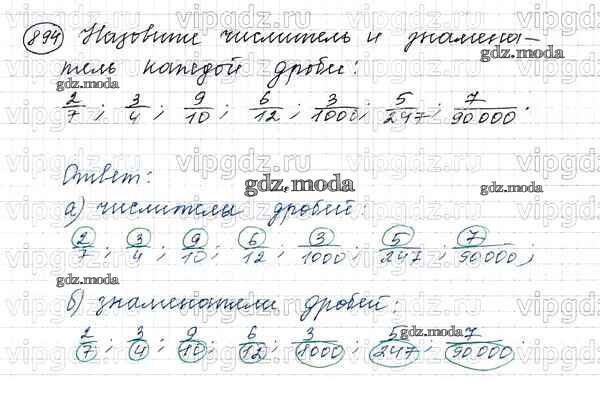 894 Назовите числитель и знамена-
тель каждой дроби:
2/7; 3/4; 9/10; 6/12; 3/1000; 5/247; 7/90000.
Ответ:
а) числители дробей:
2/7; 3/4; 9/10; 6/12; 3/1000; 5/247; 7/90000;
б) знаменатели дробей:
2/7; 3/4; 9/10; 6/12; 3/1000; 5/247; 7/90000.
gdz.moda
vipgdz.ru